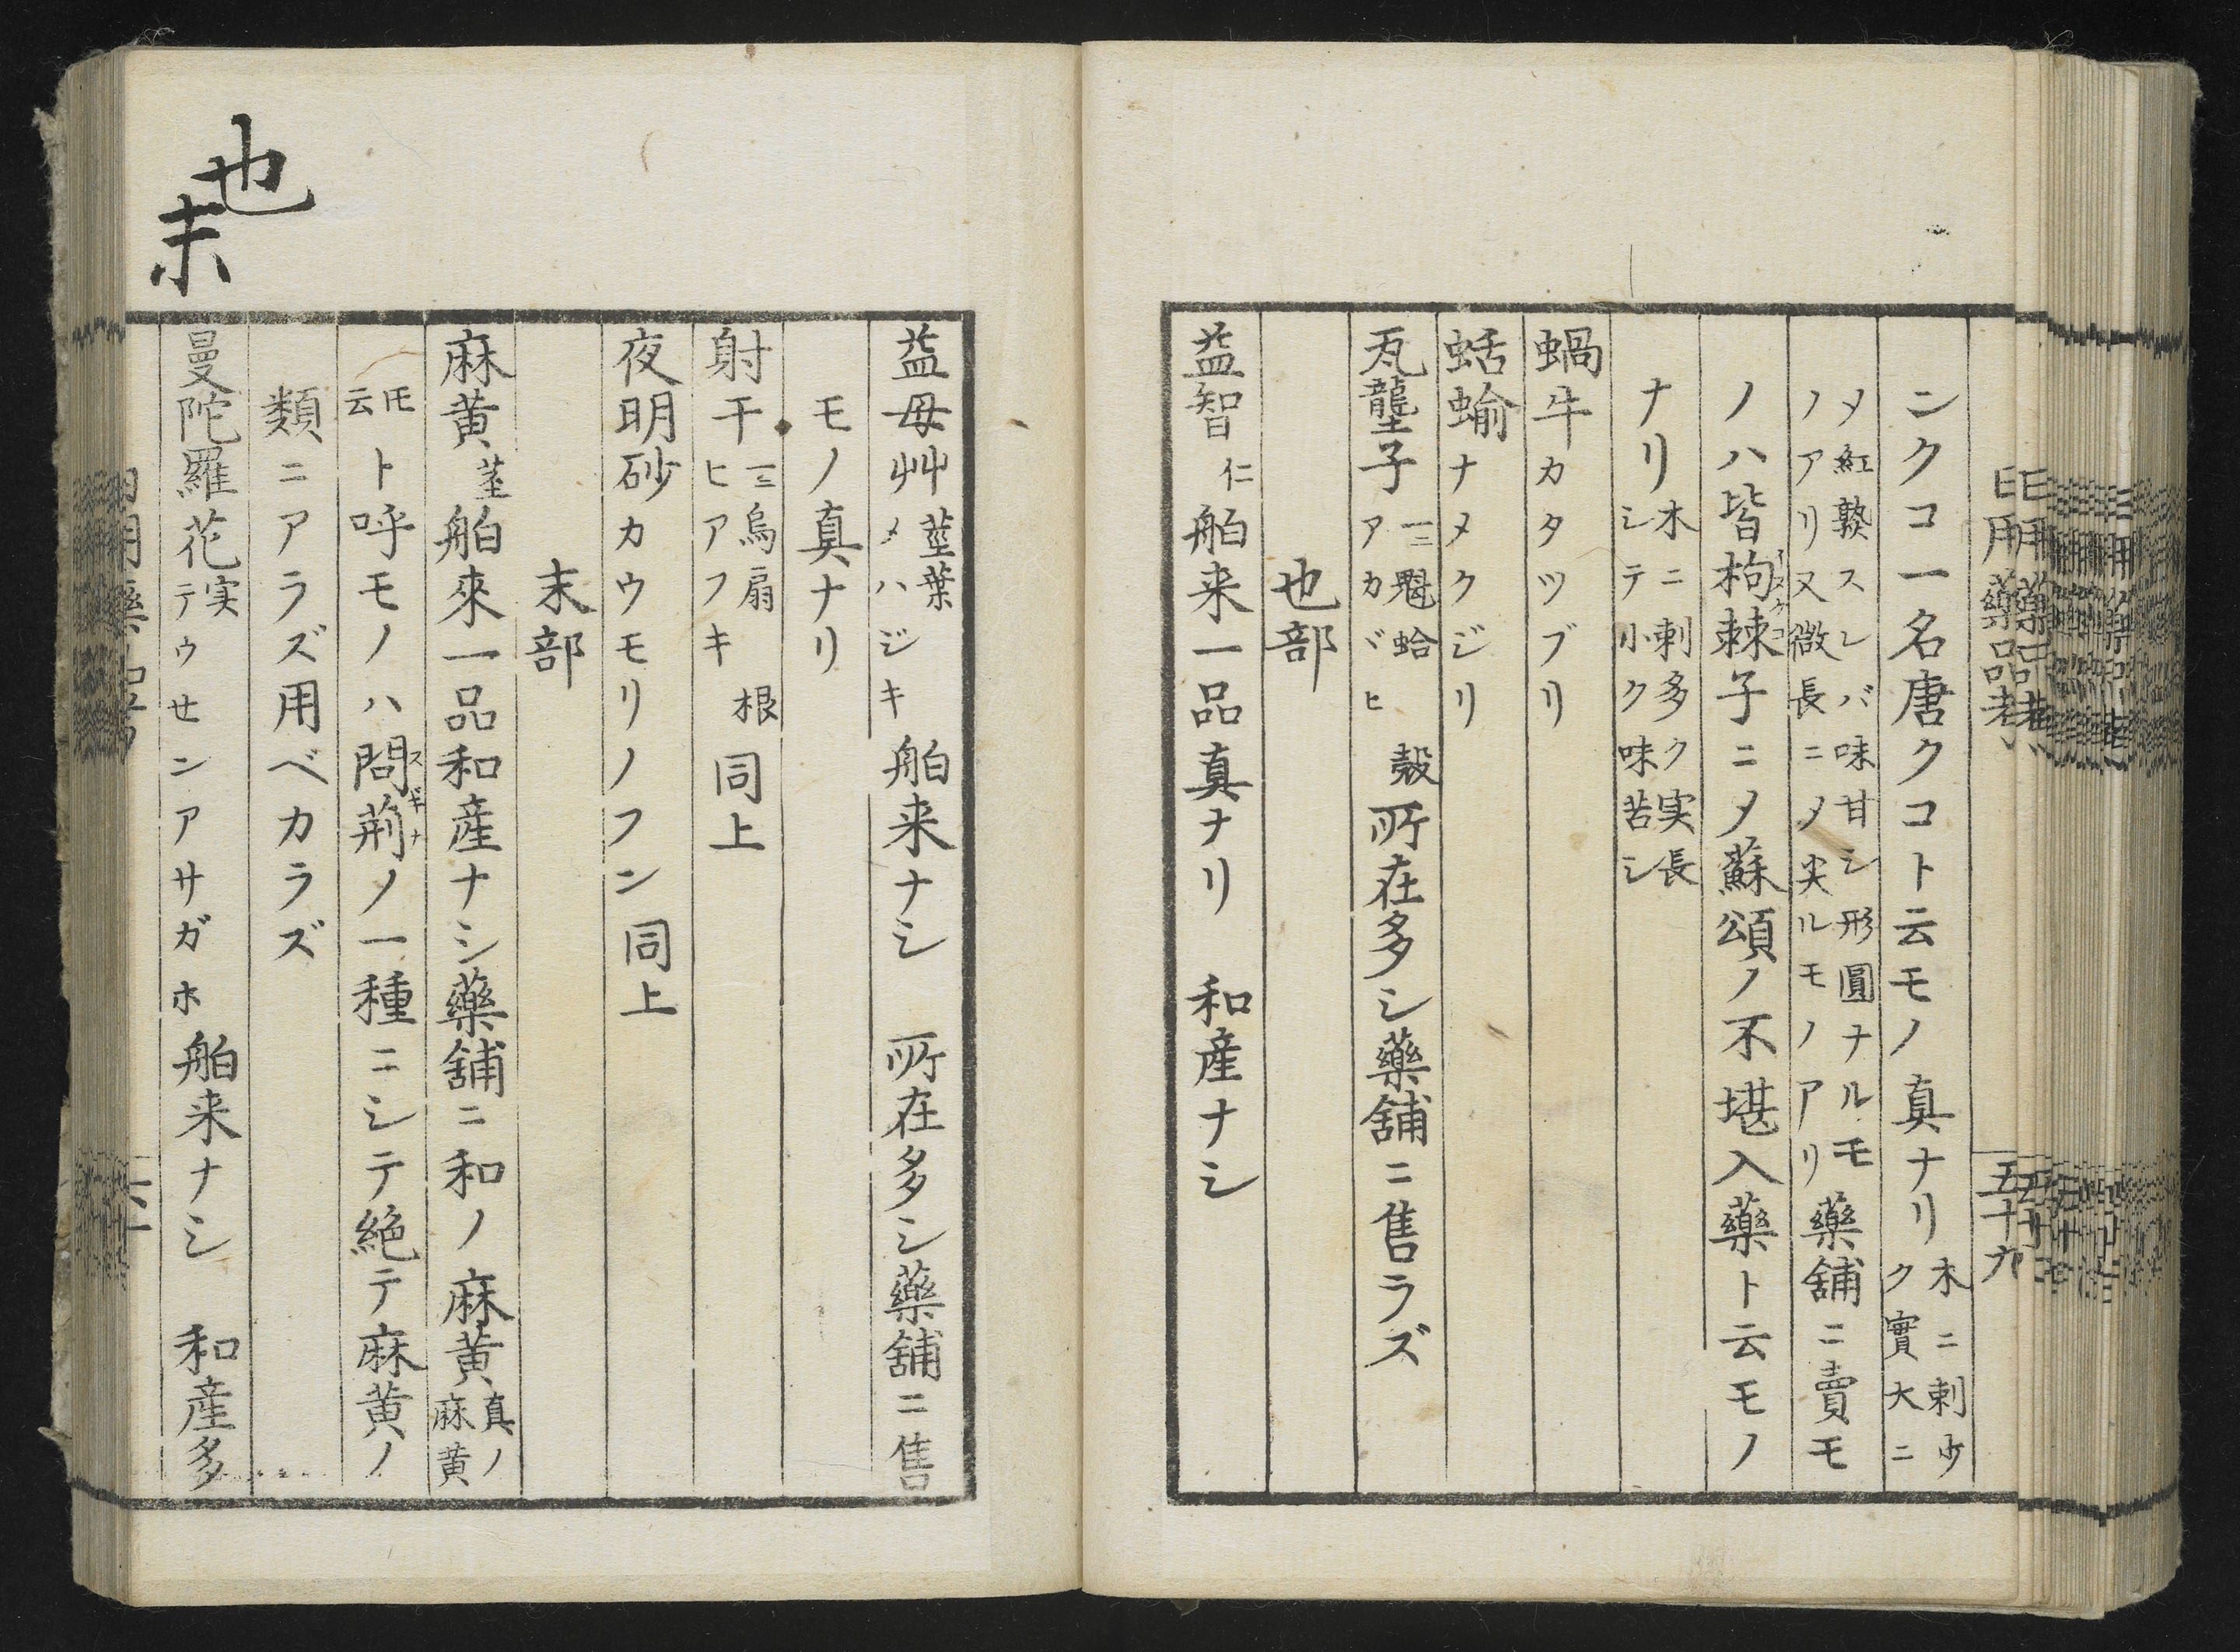 日用藥品考
五十九
ンクコ一名唐クコト云モノ真ナリ木ニ刺少
ク實大ニ
〆紅熟スレバ味甘シ形圓ナルモ
ノアリ又微長ニ〆尖ルモノアリ藥舖ニ賣モ
ノハ皆枸棘子ニ〆蘇頌ノ不堪入藥ト云モノ
イヌクコ
ナリ木ニ刺多ク実長
シテ小ク味苦シ
蝸牛カタツブリ
蛞蝓ナメクジリ
瓦壟子一ニ魁蛤
アカヾヒ 殼所在多シ藥舖ニ售ラズ
也部
益智仁舶来一品真ナリ 和産ナシ
也
末
益母艸莖葉
メハジキ 舶来ナシ 所在多シ藥舖ニ售
モノ真ナリ
射干一ニ烏扇
ヒアフキ 根同上
夜明砂カウモリノフン同上
末部
麻黄莖舶來一品和産ナシ藥舖ニ和ノ麻黄真ノ
麻黄
モ
云ト呼モノハ問荊ノ一種ニシテ絶テ麻黄ノ
スギナ
類ニアラズ用ベカラズ
曼陀羅花実
テウセンアサガホ舶来ナシ 和産多